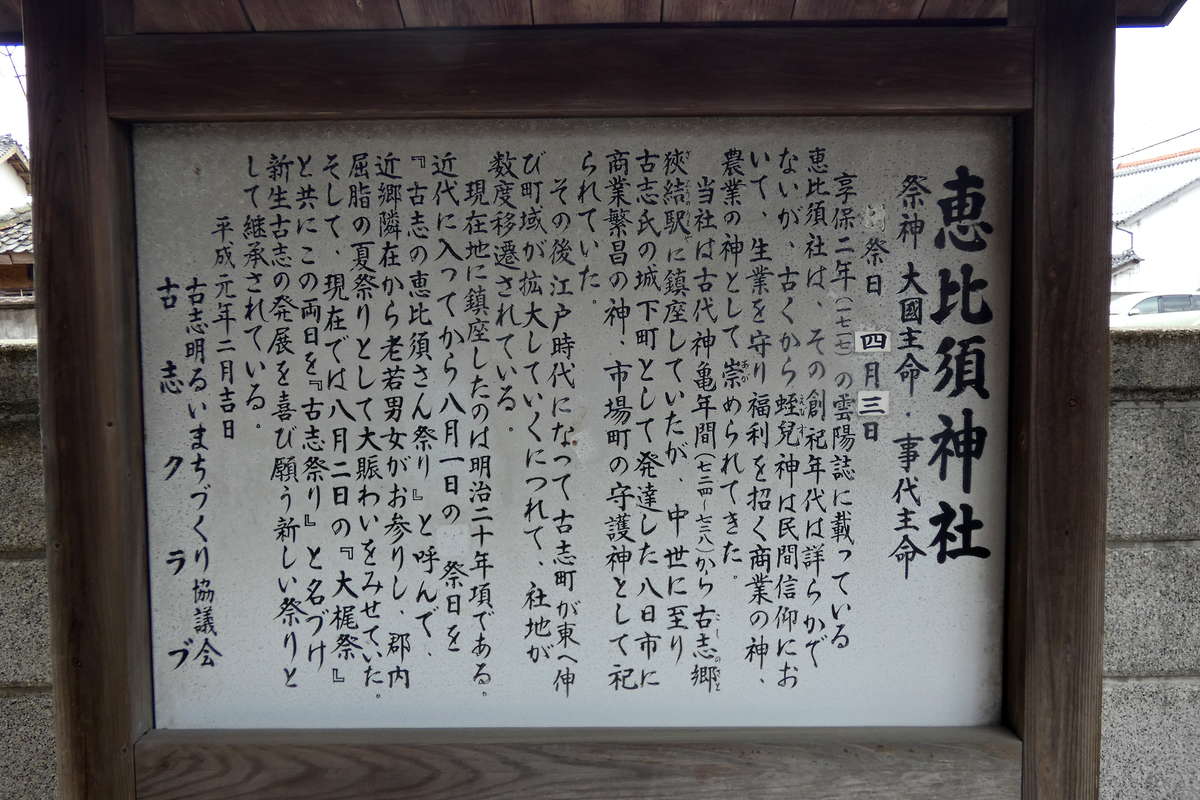 恵比須神社
祭神 大國主命・事代主命
祭日 四月三日
享保二年(一七一七)の雲陽誌に載っている
恵比須社は、その創祀年代は詳らかで
ないが、古くから蛭兒神は民間信仰にお
いて、生業を守り福利を招く商業の神、
農業の神として崇められてきた。
当社は古代神亀年間(七二四~七二八)から古志郷
狹結駅に鎮座していたが、中世に至り
古志氏の城下町として発達した八日市に
商業繁昌の神、市場町の守護神として祀
られていた。
その後江戸時代になって古志町が東へ伸
び町域が拡大していくにつれて、社地が
数度移遷されている。
現在地に鎮座したのは明治二十年項である。
近代に入ってから八月一日の 祭日を
『古志の恵比須さん祭り』と呼んで、
近郷隣在から老若男女がお参りし、郡内
屈脂の夏祭りとして大賑わいをみせていた。
そして、現在では八月二日の『大梶祭』
と共にこの両日を『古志祭り』と名づけ
新生古志の発展を喜び願う新しい祭りと
して継承されている。
平成元年二月吉日
古志明るいまちづくり協議会
古志クラブ